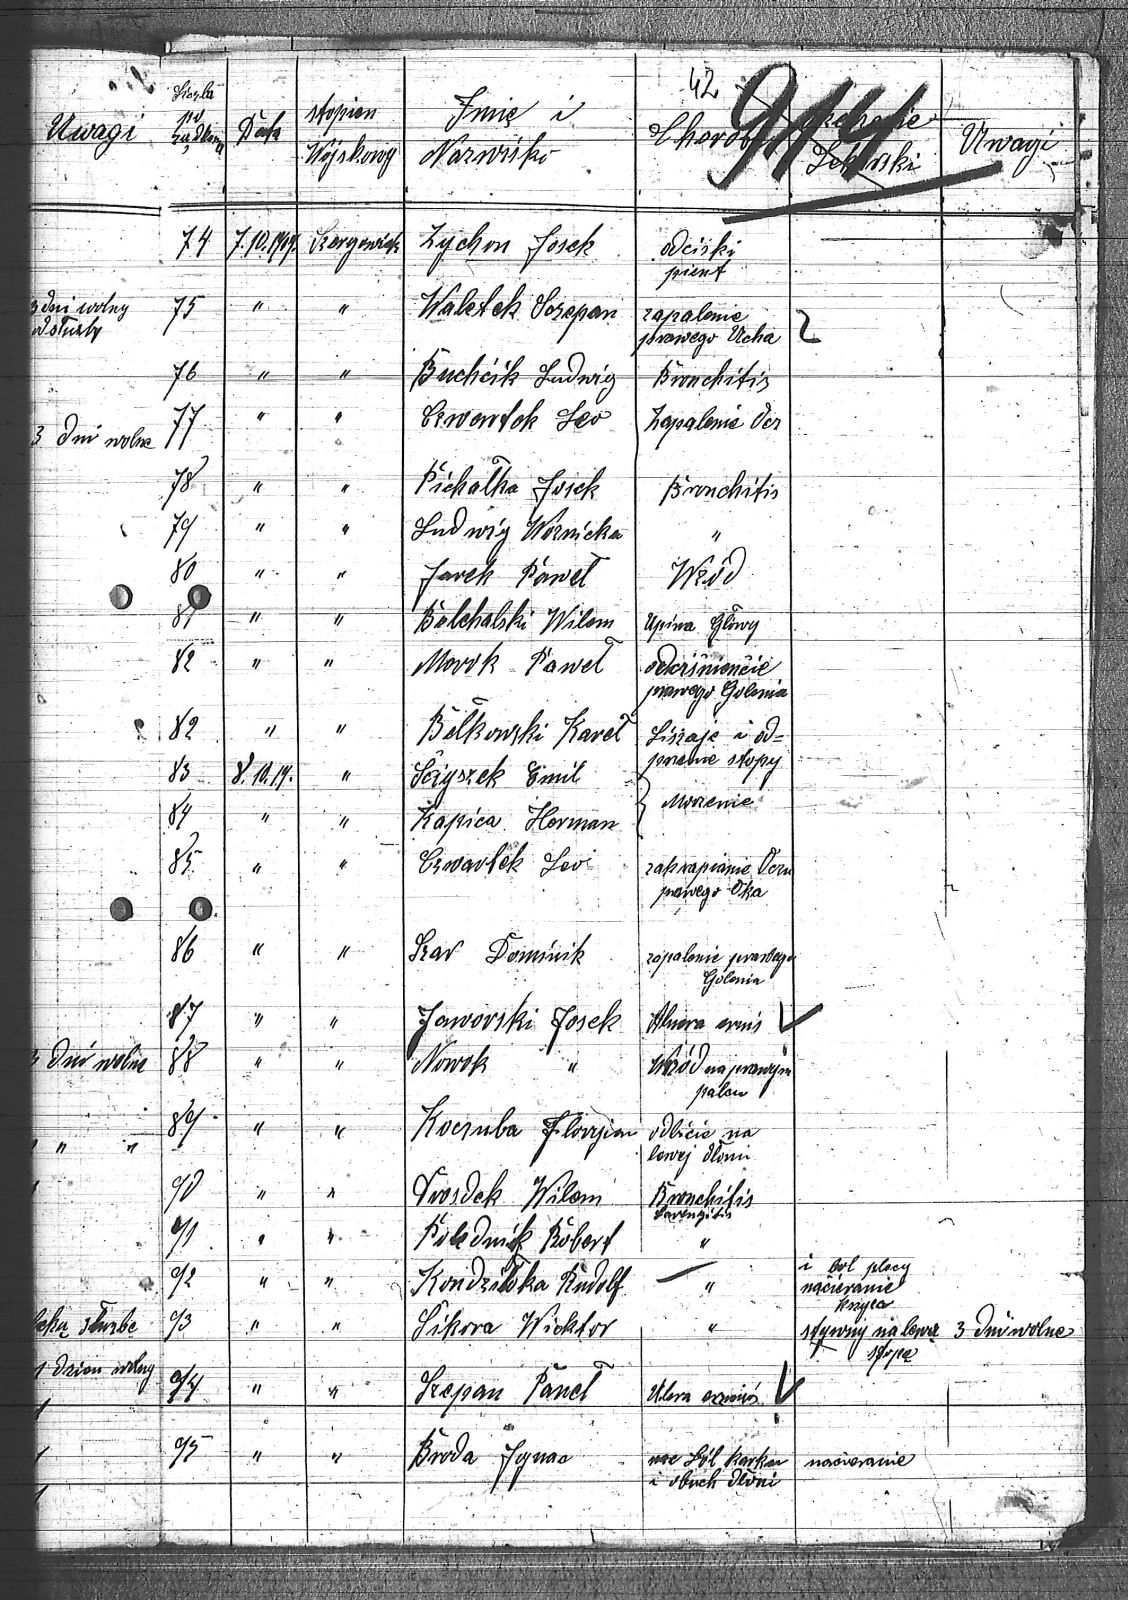 42
914
Uwagi Liczba po rządkowa Data stopien Wojskowy Imię i Nazwisko Chorob Uwagi
74 7.10.1919 Szeregowiek Zychon Josek odciski
pient
3 dni wolny 75 " " Waletek Szczepan zapalenie
od służby prawego Ucha
76 " " Buchcik Ludwig Bronchitis
3 dni wolne 77 " " Czwartek Leo Zapalenie Ocz
78 " " Pichatka Josek Bronchitis
79 " " Ludwig Woznicka "
80 " " Jarek Paweł Wrzód
81 " " Belchalski Wilem Upina Głowy
82 " " Morok Paweł
prawego Golenia
82 " " Bełkowski Kareł Liszaje i od=
parzenie stopy
83 8.10.19. " Scigszek Emil
} Mozenie
84 " " Kapica Herman
85 " " Czwartek Levi zakrapianie Oczu
prawego Oka
86 " " Szar Dominik zapalenie prawego
Golenia
87 " " Jaworski Josek
3 dni wolne 88 " " Nowok " Wrzód na prawym
palcu
" " 89 " " Koczuba Florian odbicie na
lewej dłoni
90 " " Drosdek Wilem Bronchitis
Larengitis
91 " " Polednik Robert "
92 " " Kondziołka Rudolf " i bol plecy
nacieranie
krzyca
lekką służbe 93 " " Sikora Wicktor " stywny na lewą 3 dni wolne
stopę
1 dzien wolny 94 " " Szepan Paneł
95 " " Broda Ignac Ból karku nacieranie
i obuch dłoni